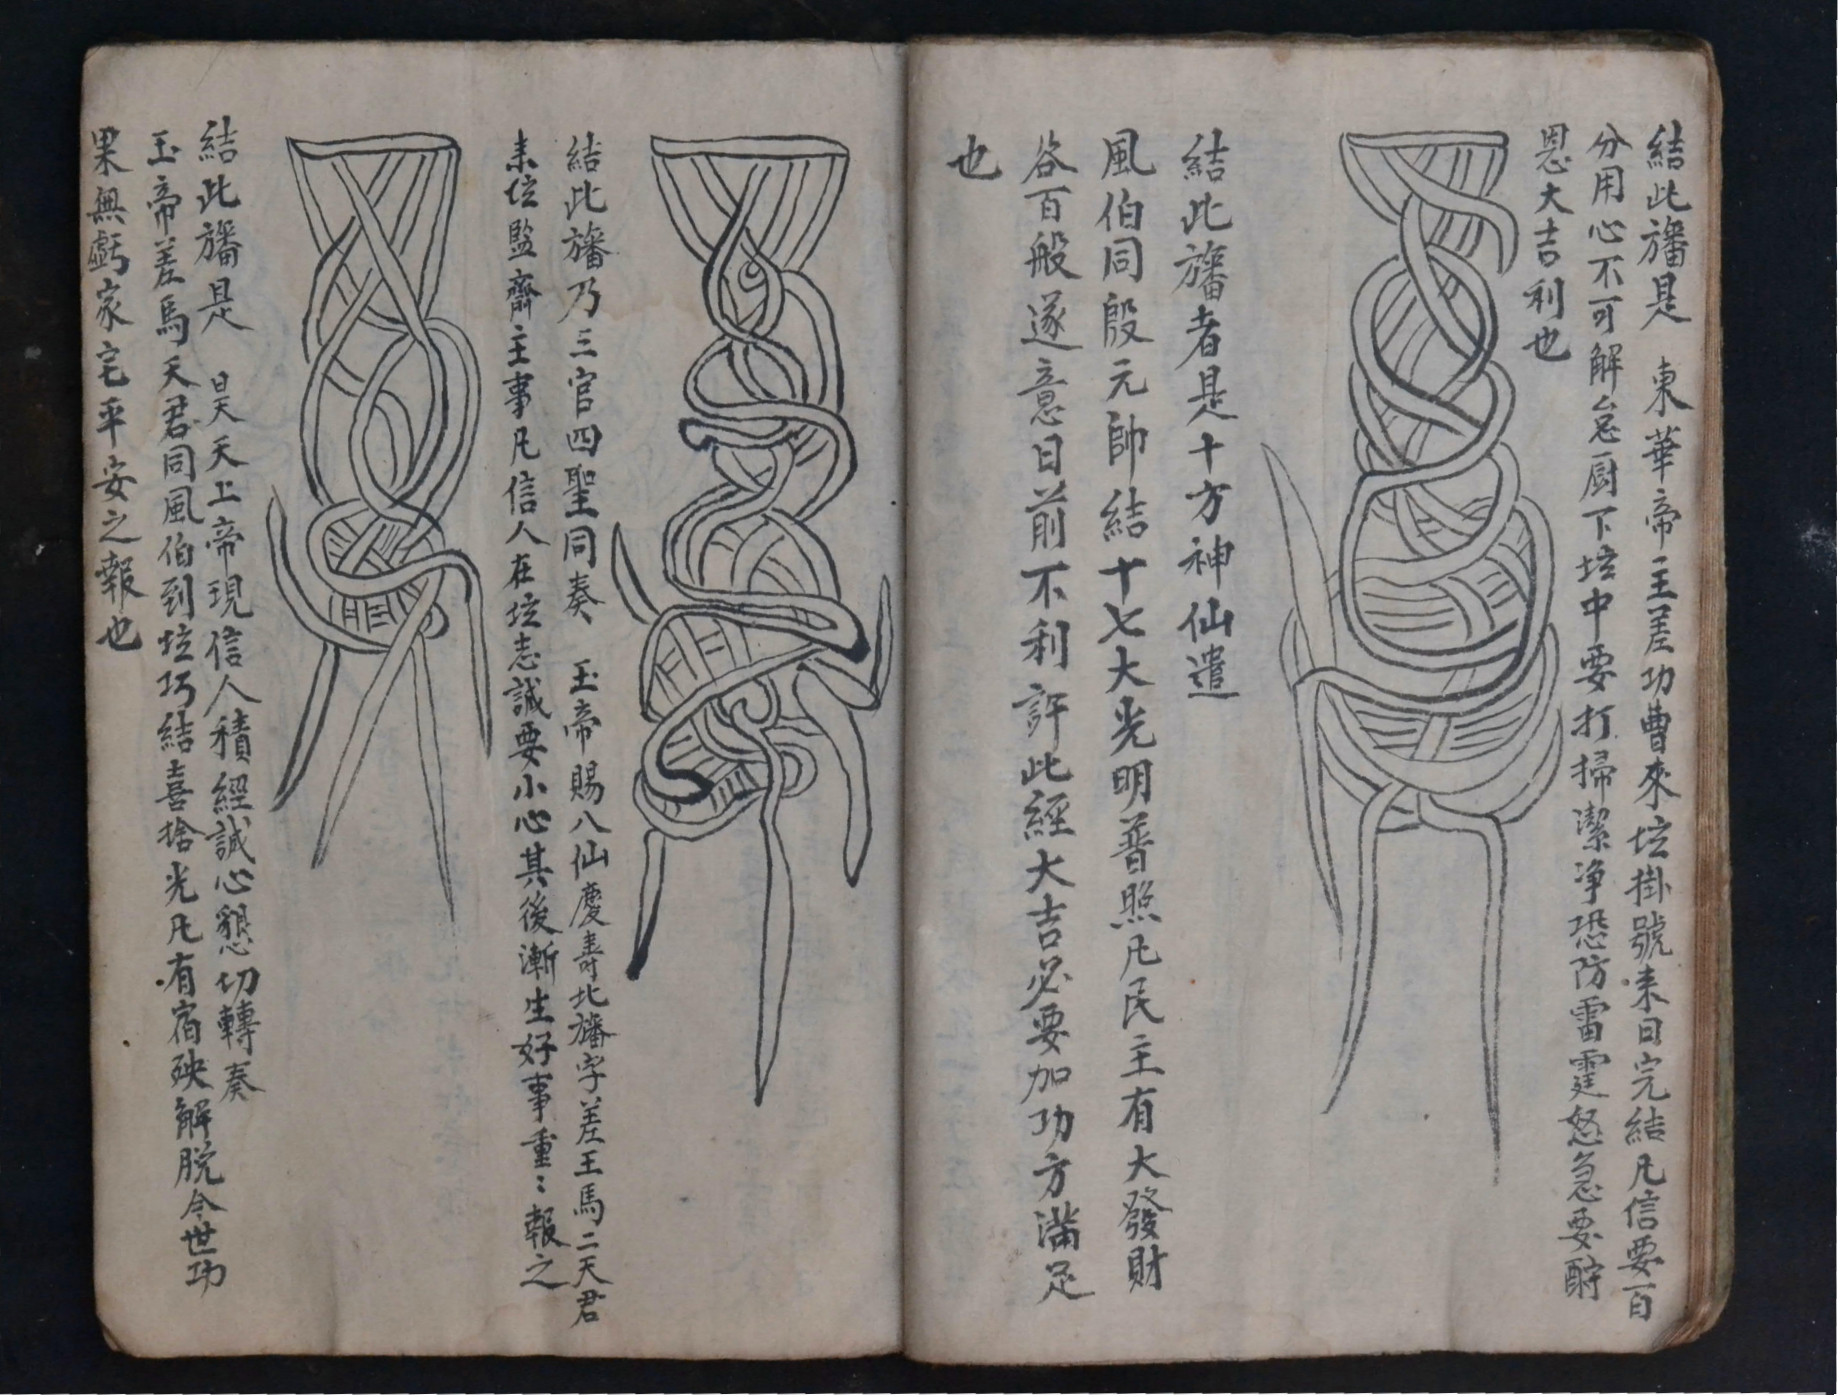 結此旛是　東華帝主差功曹來坛掛號来日完結凡信要百
分用心不可解怠厨下坛中要打掃潔净恐防雷霆怒急要酧
恩大吉利也
結此旛者是十方神仙遣
風伯同殷元帥結十七大光明普照凡民主有大發財
谷百般遂意目前不利許此經大吉必要加功方滿足
也
結此旛乃三官四聖同奏　玉帝賜八仙慶壽北旛字差王馬二天君
来坛監齋主事凡信人在坛志誠要小心其後漸生好事重〻報之
結此旛是　昊天天上帝現信人積經誠心懇切轉奏
玉帝差馬天君同風伯到坛巧結喜捨光凡有宿殃解脱今世功
果無虧家宅平安之報也